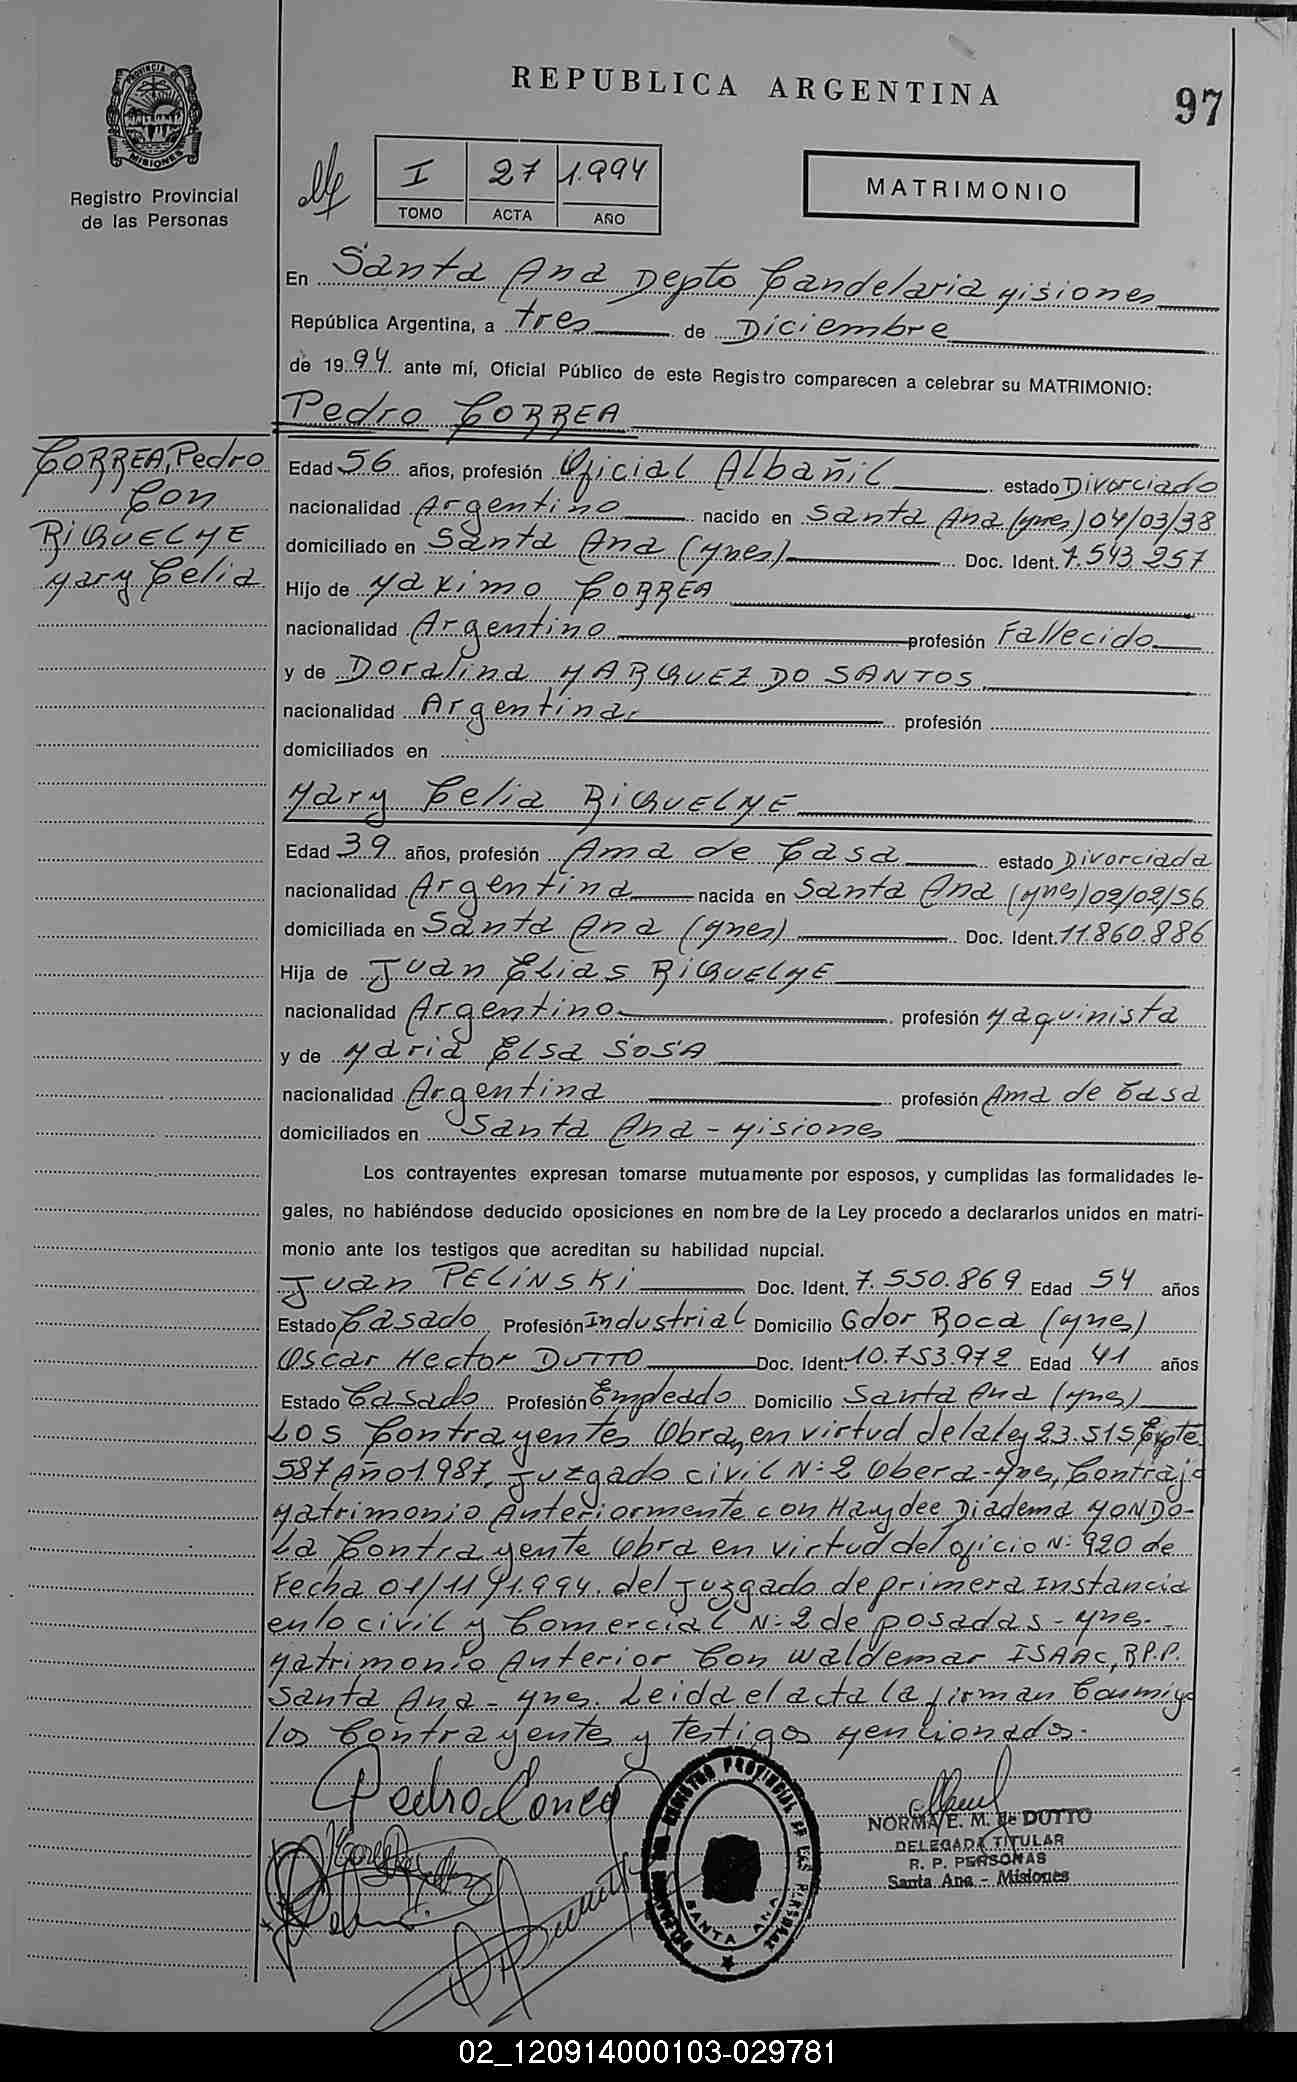 REPUBLICA ARGENTINA
97
PROVINCIA DE
MISIONES
Registro Provincial
de las Personas
I 27 1.994
TOMO ACTA AÑO
MATRIMONIO
En Santa Ana Depto Candelaria Misiones
República Argentina, a tres de Diciembre
de 1994 ante mí, Oficial Público de este Registro comparecen a celebrar su MATRIMONIO:
Pedro CORREA
CORREA, Pedro
Con
RIQUELME
Mary Celia
Edad 56 años, profesión Oficial Albañil estado Divorciado
nacionalidad Argentino nacido en Santa Ana (Mnes) 04/03/38
domiciliado en Santa Ana (Mnes) Doc. Ident. 7.543.257
Hijo de Maximo CORREA
nacionalidad Argentino profesión Fallecido
y de Doralina MARQUEZ DO SANTOS
nacionalidad Argentina profesión
domiciliados en
Mary Celia RIQUELME
Edad 39 años, profesión Ama de Casa estado Divorciada
nacionalidad Argentina nacida en Santa Ana (Mnes) 02/02/56
domiciliada en Santa Ana (Mnes) Doc. Ident. 11.860.886
Hija de Juan Elias RIQUELME
nacionalidad Argentino profesión Maquinista
y de Maria Elsa SOSA
nacionalidad Argentina profesión Ama de Casa
domiciliados en Santa Ana - Misiones
Los contrayentes expresan tomarse mutuamente por esposos, y cumplidas las formalidades le-
gales, no habiéndose deducido oposiciones en nombre de la Ley procedo a declararlos unidos en matri-
monio ante los testigos que acreditan su habilidad nupcial.
Juan PELINSKI Doc. Ident. 7.550.869 Edad 54 años
Estado Casado Profesión Industrial Domicilio Gdor Roca (Mnes)
Oscar Hector DUTTO Doc. Ident. 10.753.972 Edad 41 años
Estado Casado Profesión Empleado Domicilio Santa Ana (Mnes)
Los Contrayentes Obran, en virtud de la ley 23.515 Expte
587 Año 1.987, Juzgado civil N:2 Obera-Mnes, Contrajo
Matrimonio Anteriormente con Haydee Diadema MONDO-
La Contrayente Obra en virtud del oficio N: 920 de
Fecha 01/11/1.994. del Juzgado de primera Instancia
en lo civil y Comercial N:2 de posadas - Mnes.-
Matrimonio Anterior Con Waldemar ISAAC, R.P.P.
Santa Ana - Mnes. Leida el acta la firman Conmigo
los Contrayentes y Testigos Mencionados.
Pedro Correa
REGISTRO PROVINCIAL DE LAS PERSONAS
SANTA ANA
NORMA E. M. de DUTTO
DELEGADA TITULAR
R. P. PERSONAS
Santa Ana - Misiones
02_120914000103-029781